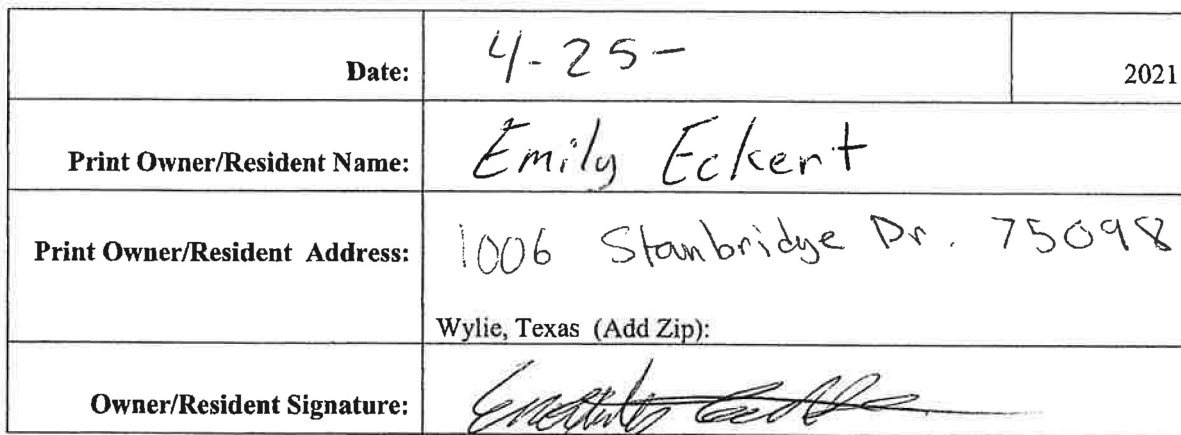 Date: 4-25- 2021
Print Owner/Resident Name: Emily Eckert
Print Owner/Resident Address: 1006 Stanbridge Dr. 75098
Wylie, Texas (Add Zip):
Owner/Resident Signature: